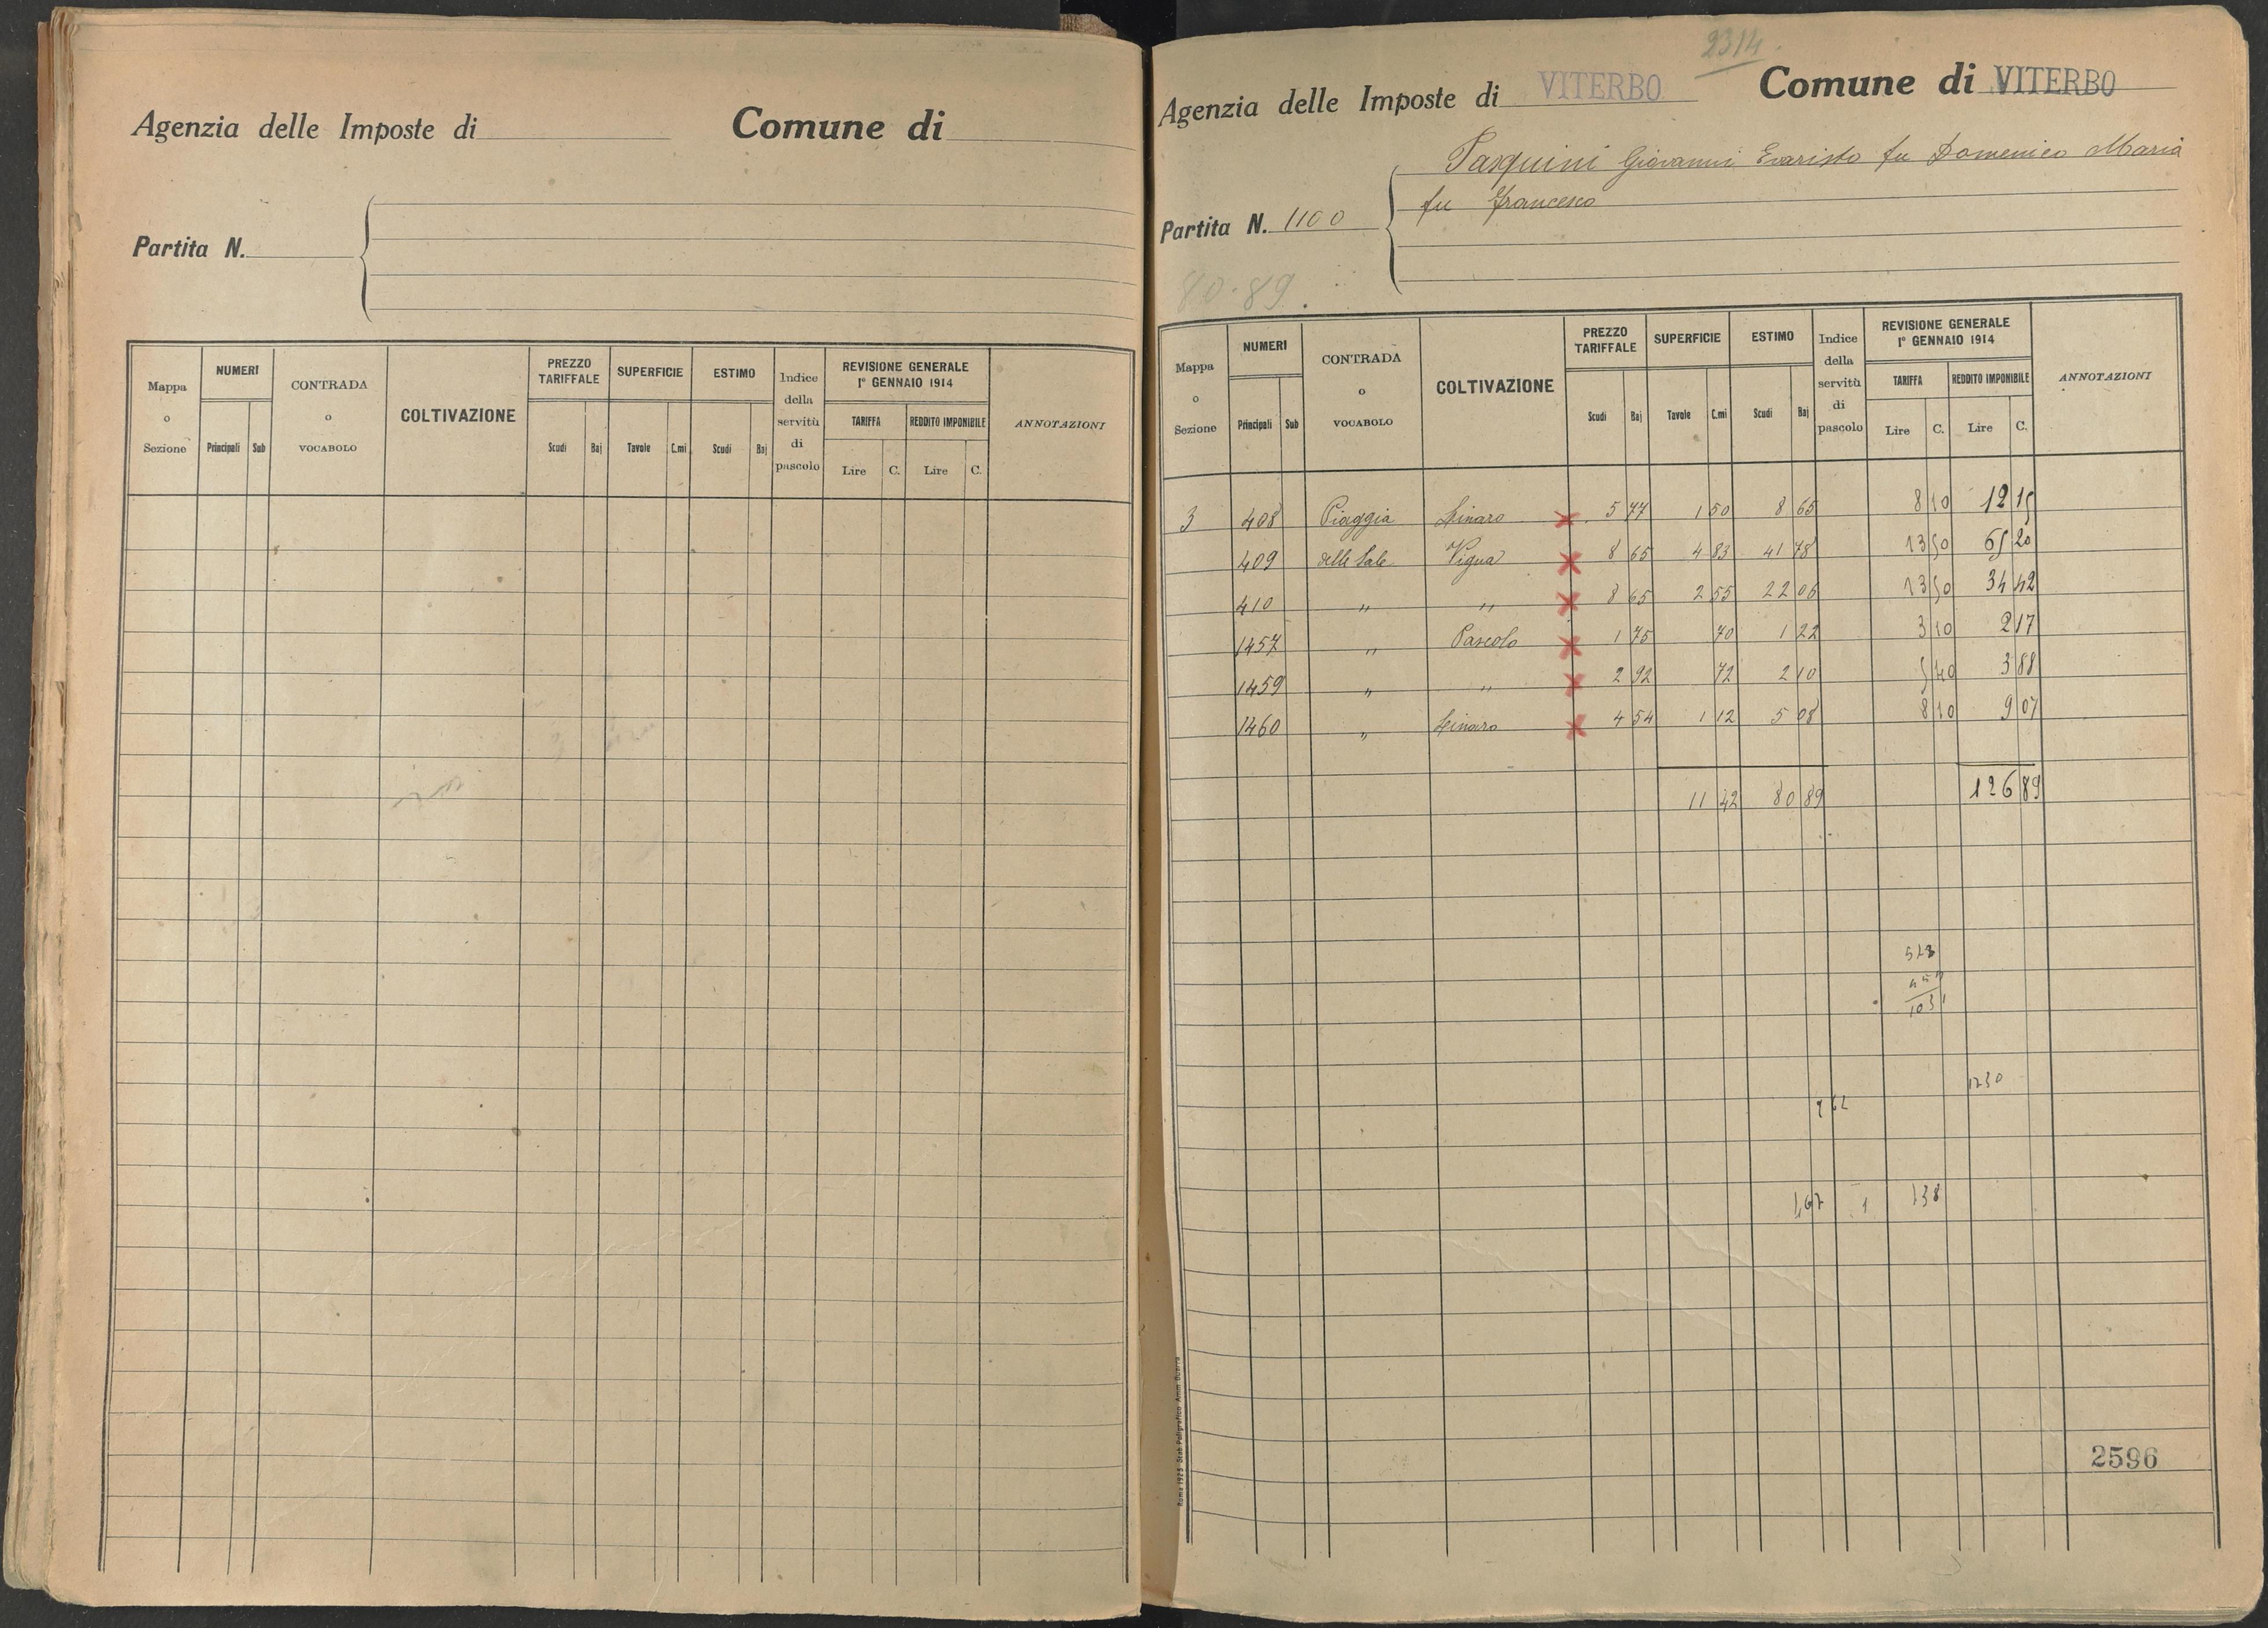 Agenzia delle Imposte di
Comune di
Partita N.
Mappa o Sezione
NUMERI
Principali Sub
CONTRADA o VOCABOLO
COLTIVAZIONE
PREZZO TARIFFALE
Scudi Baj
SUPERFICIE
Tavole C.mi
ESTIMO
Scudi Baj
Indice della servitù di pascolo
REVISIONE GENERALE
1° GENNAIO 1914
TARIFFA REDDITO IMPONIBILE
Lire C. Lire C.
ANNOTAZIONI
2314
Agenzia delle Imposte di VITERBO Comune di VITERBO
Pasquini Giovanni Evaristo fu Domenico Maria
fu Francesco
Partita N. 1100
80.89.
Mappa o Sezione
NUMERI
Principali Sub
CONTRADA o VOCABOLO
COLTIVAZIONE
PREZZO TARIFFALE
Scudi Baj
SUPERFICIE
Tavole C.mi
ESTIMO
Scudi Baj
Indice della servitù di pascolo
REVISIONE GENERALE
1° GENNAIO 1914
TARIFFA REDDITO IMPONIBILE
Lire C. Lire C.
ANNOTAZIONI
3 408 Piaggia 5 77 1 50 8 65 8 10 12 15
409 delle Sale Vigna 8 65 4 83 41 78 13 50 65 20
410 " " 8 65 2 55 22 06 13 50 34 42
1457 " Pascolo 1 75 70 1 22 3 10 2 17
1459 " " 2 92 72 2 10 5 40 3 88
1460 " 4 54 1 12 5 08 8 10 9 07
11 42 80 89 126 89
1031
1230
1,67 1 138
2596